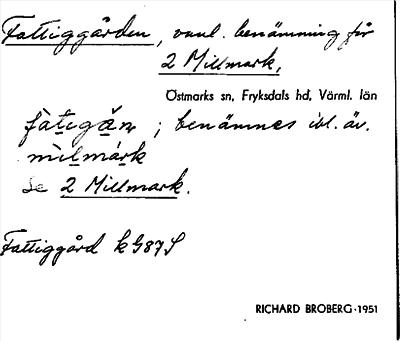 Fattiggården, vanl. benämning för
2 Millmark,
Östmarks sn, Fryksdals hd, Värml. län
fàtigǡn ; benämnes ibl. äv.
mìlmárk
Se 2 Millmark.
Fattiggård k G87S
RICHARD BROBERG·1951